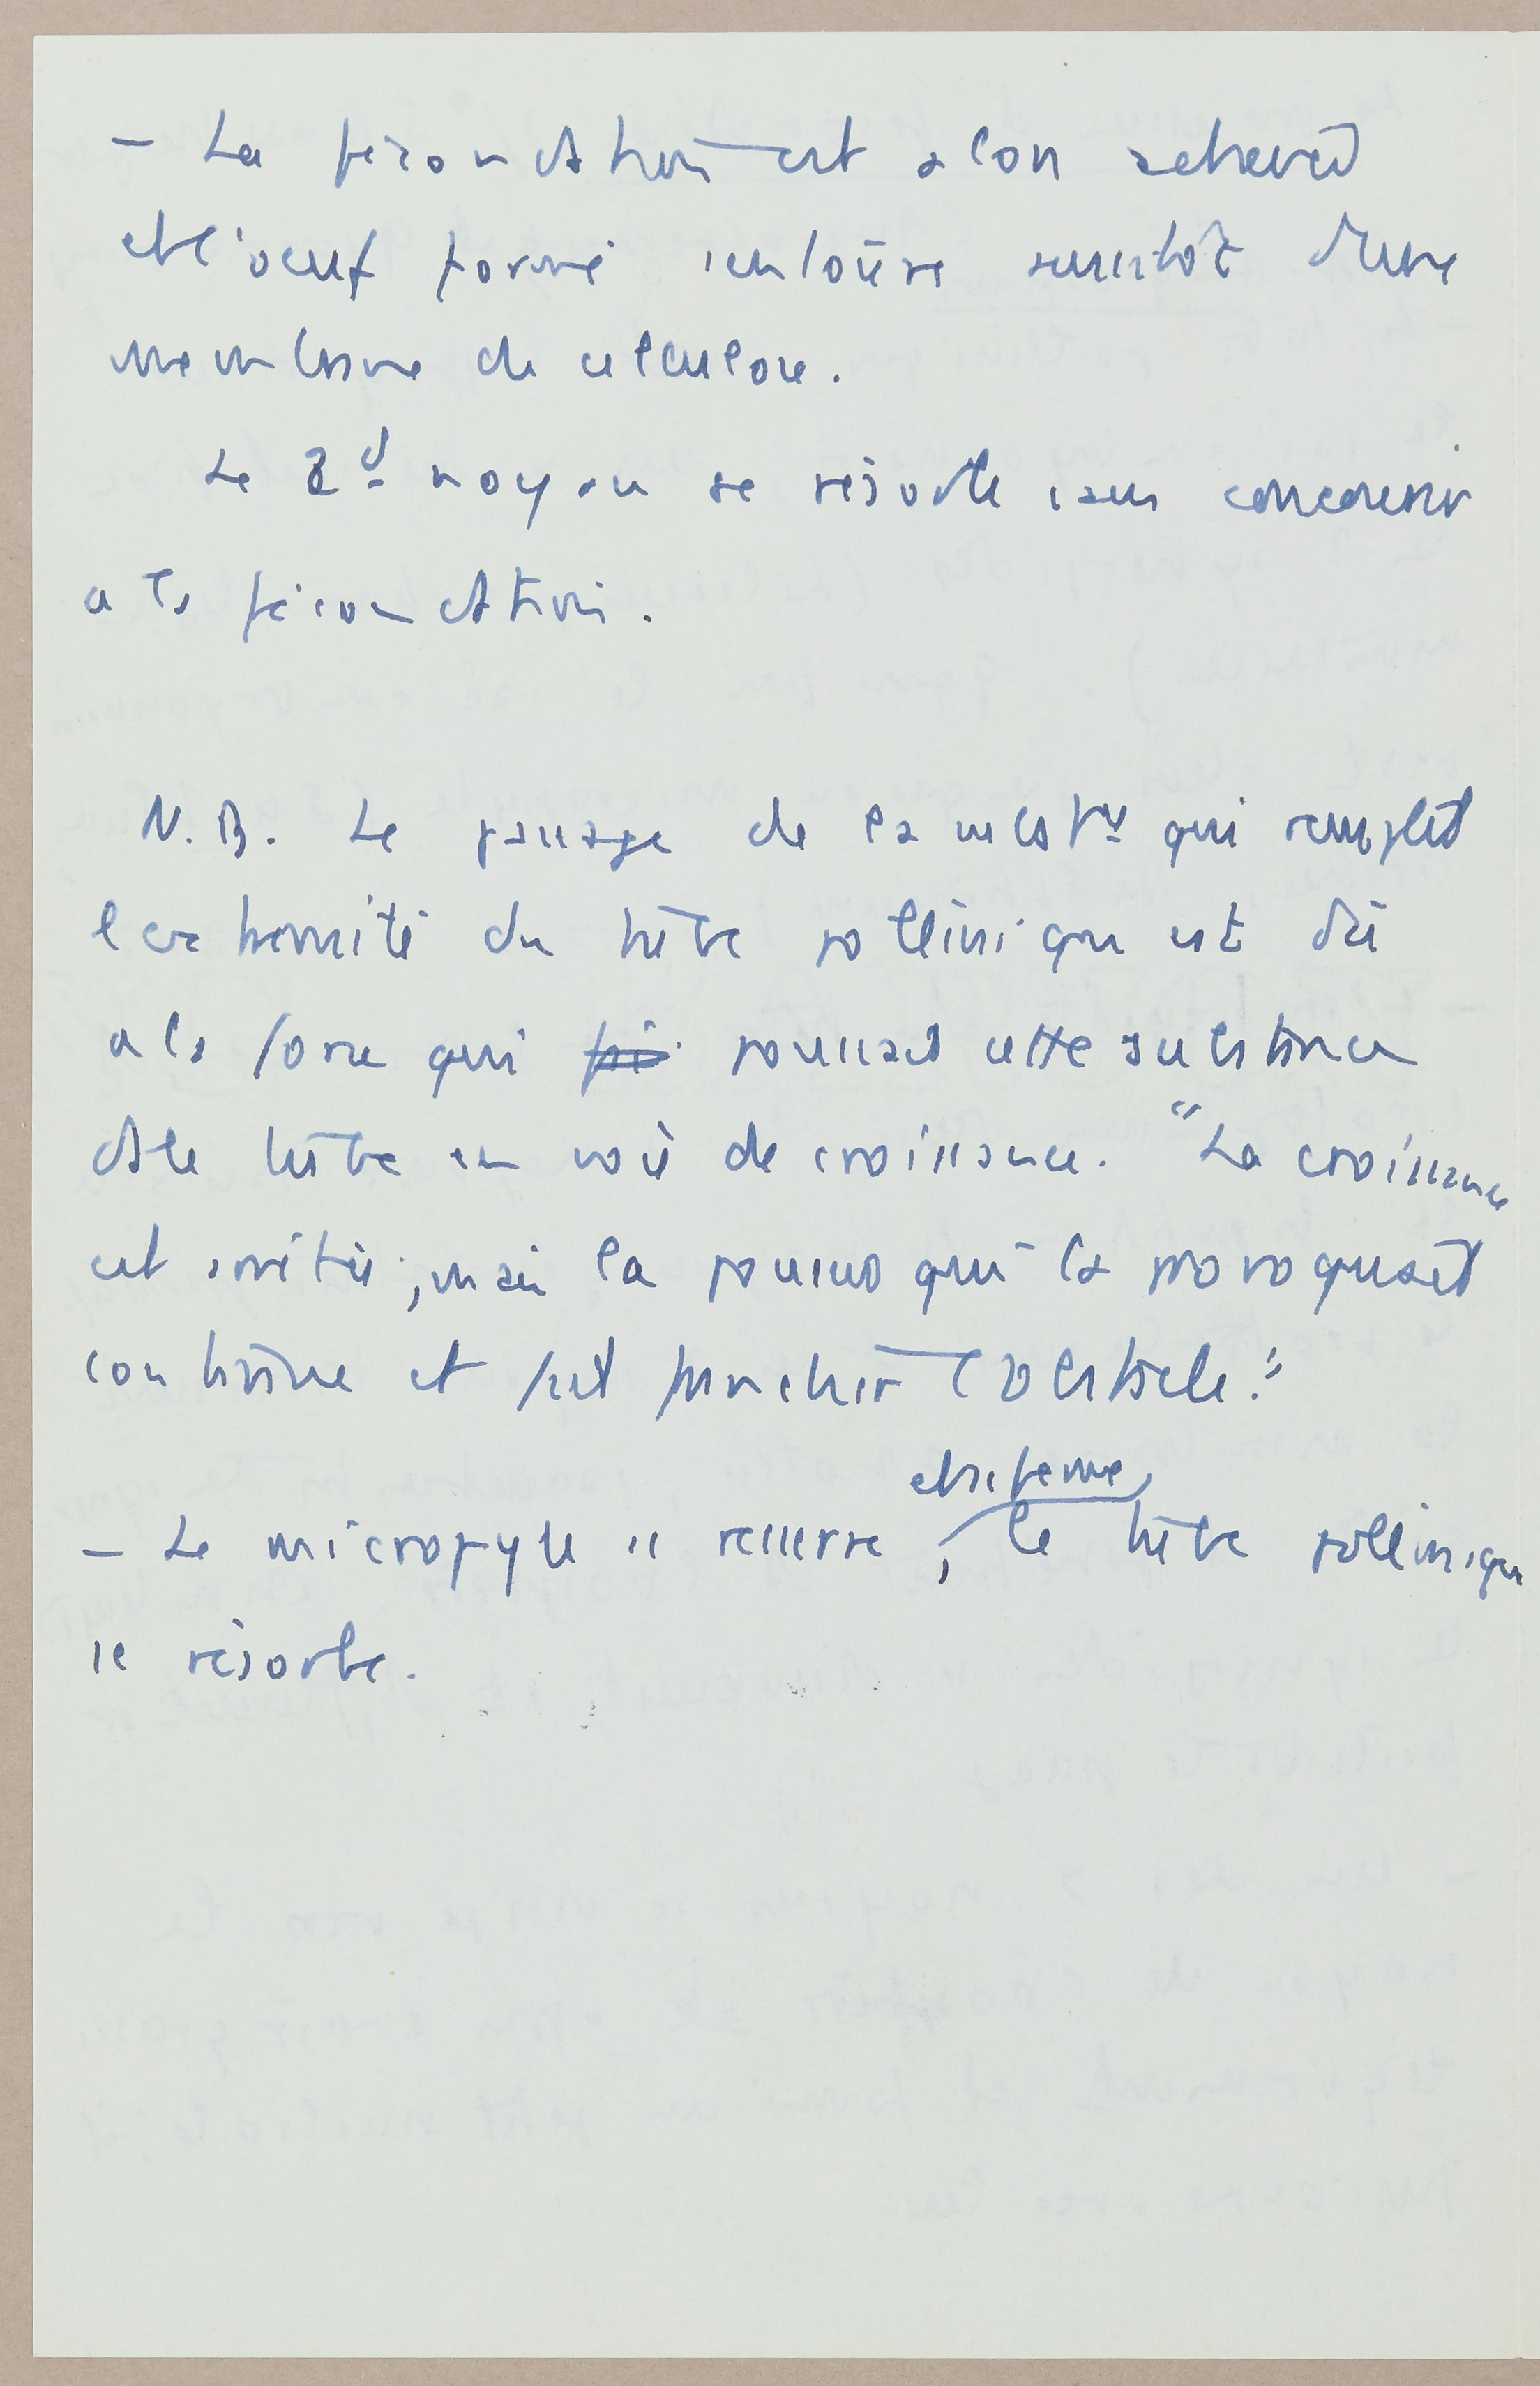 - La fécondation est alors achevée
et l'oeuf formé s'entoure aussitôt d'une
membrane de cellulose.
Le 2d noyau se résorbe sans concourir
a la fécondation.
N.B. Le passage de la subst qui remplit
l'extrémité du tube pollinique est dû
a la force qui poussait cette substance
et le tube en voie de croissance. "La croissance
est arrêtée, mais la poussée qui la provoquait
continue et fait franchir l'obstacle."
- Le micropyle se resserre, et se ferme, le tube pollinique
se résorbe.